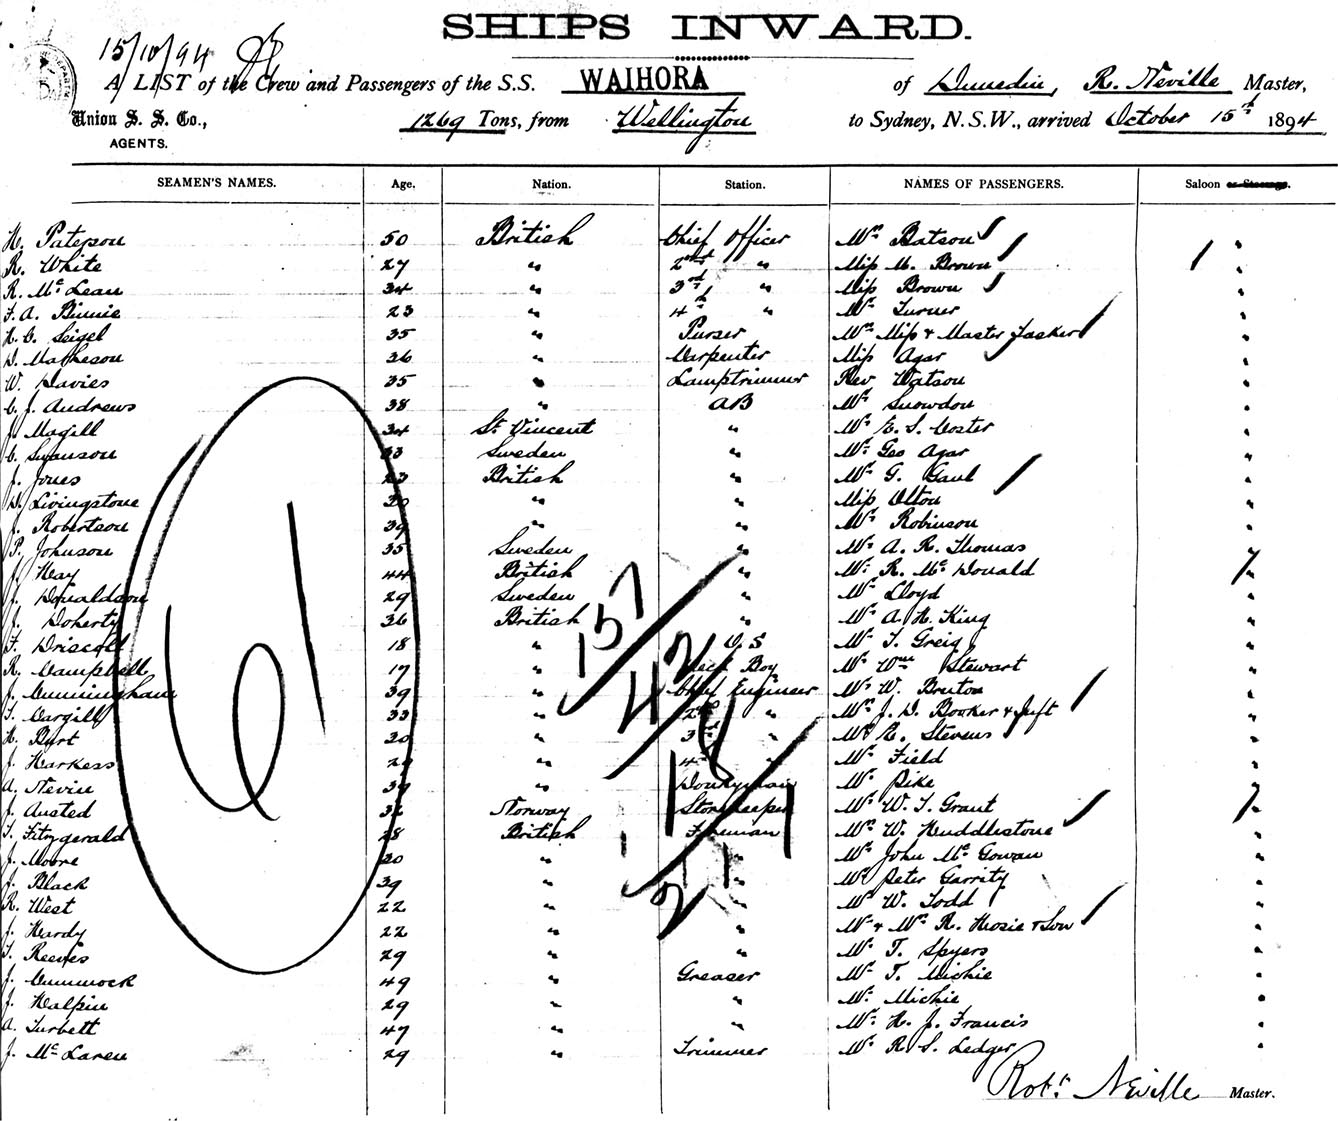 SHIPS INWARD.
15/10/94
A LIST of the Crew and Passengers of the S.S. WAIHORA of Dunedin, R. Neville Master,
Union S. S. Co., 1269 Tons, from Wellington to Sydney, N.S.W., arrived October 15th 1894
AGENTS.
SEAMEN'S NAMES. Age. Nation. Station. NAMES OF PASSENGERS. Saloon or Steerage.
H. Paterson 50 British Chief Officer Mrs Batson "
R. White 27 " 2nd " Miss M. Brown 1 "
R. McLean 34 " 3rd " Miss Brown "
F. A. Binnie 23 " 4th " Mr Turner "
H. C. Seigel 35 " Purser Mrs Miss & Master Tasker "
D. Matheson 26 " Carpenter Miss Agar "
W. Davies 35 " Lamptrimmer Rev Watson "
C. J. Andrews 38 " AB Mr Snowdon "
J. Magill 34 St Vincent " Mr E. S. Coster "
C. Swanson 33 Sweden " Mr Geo Agar "
J. Jones 23 British " Mr G. Gaul "
D. Livingstone 30 " " Miss Olton "
J. Robertson 39 " " Mr Robinson "
P. Johnson 35 Sweden " Mr A. R. Thomas "
J. Hay 44 British " Mr R. McDonald "
J. Donaldson 29 Sweden " Mr Lloyd "
J. Doherty 36 British " Mr A. H. King "
F. Driscoll 18 " O.S Mr T. Greig "
R. Campbell 17 " Deck Boy Mr Wm Stewart "
J. Cunningham 39 " Chief Engineer Mr W. Bruton "
T. Cargill 33 " 2nd " Mrs J. D. Booker & Inft "
H. Burt 30 " 3rd " Mr E. Stevens "
J. Harkess 29 " 4th " Mr Field "
A. Nevin 39 " Donkeyman Mr Pike "
J. Austed 32 Norway Storekeeper Mr W. T. Grant "
T. Fitzgerald 28 British Fireman Mrs W. Huddlestone "
J. Moore 30 " " Mr John McGowan "
J. Black 39 " " Mr Peter Garrity "
R. West 22 " " Mr W. Todd "
J. Hardy 22 " " Mr & Mrs R. Hosie & Son "
T. Reeves 29 " " Mr T. Spyers "
J. Cummock 49 " Greaser Mr T. Michie "
J. Halpin 29 " " Mr Michie "
A. Turbett 47 " " Mr H. J. Francis "
J. McLaren 29 " Trimmer Mr R. S. Ledger "
61
157
42
18
1
2
Robt Neville Master.